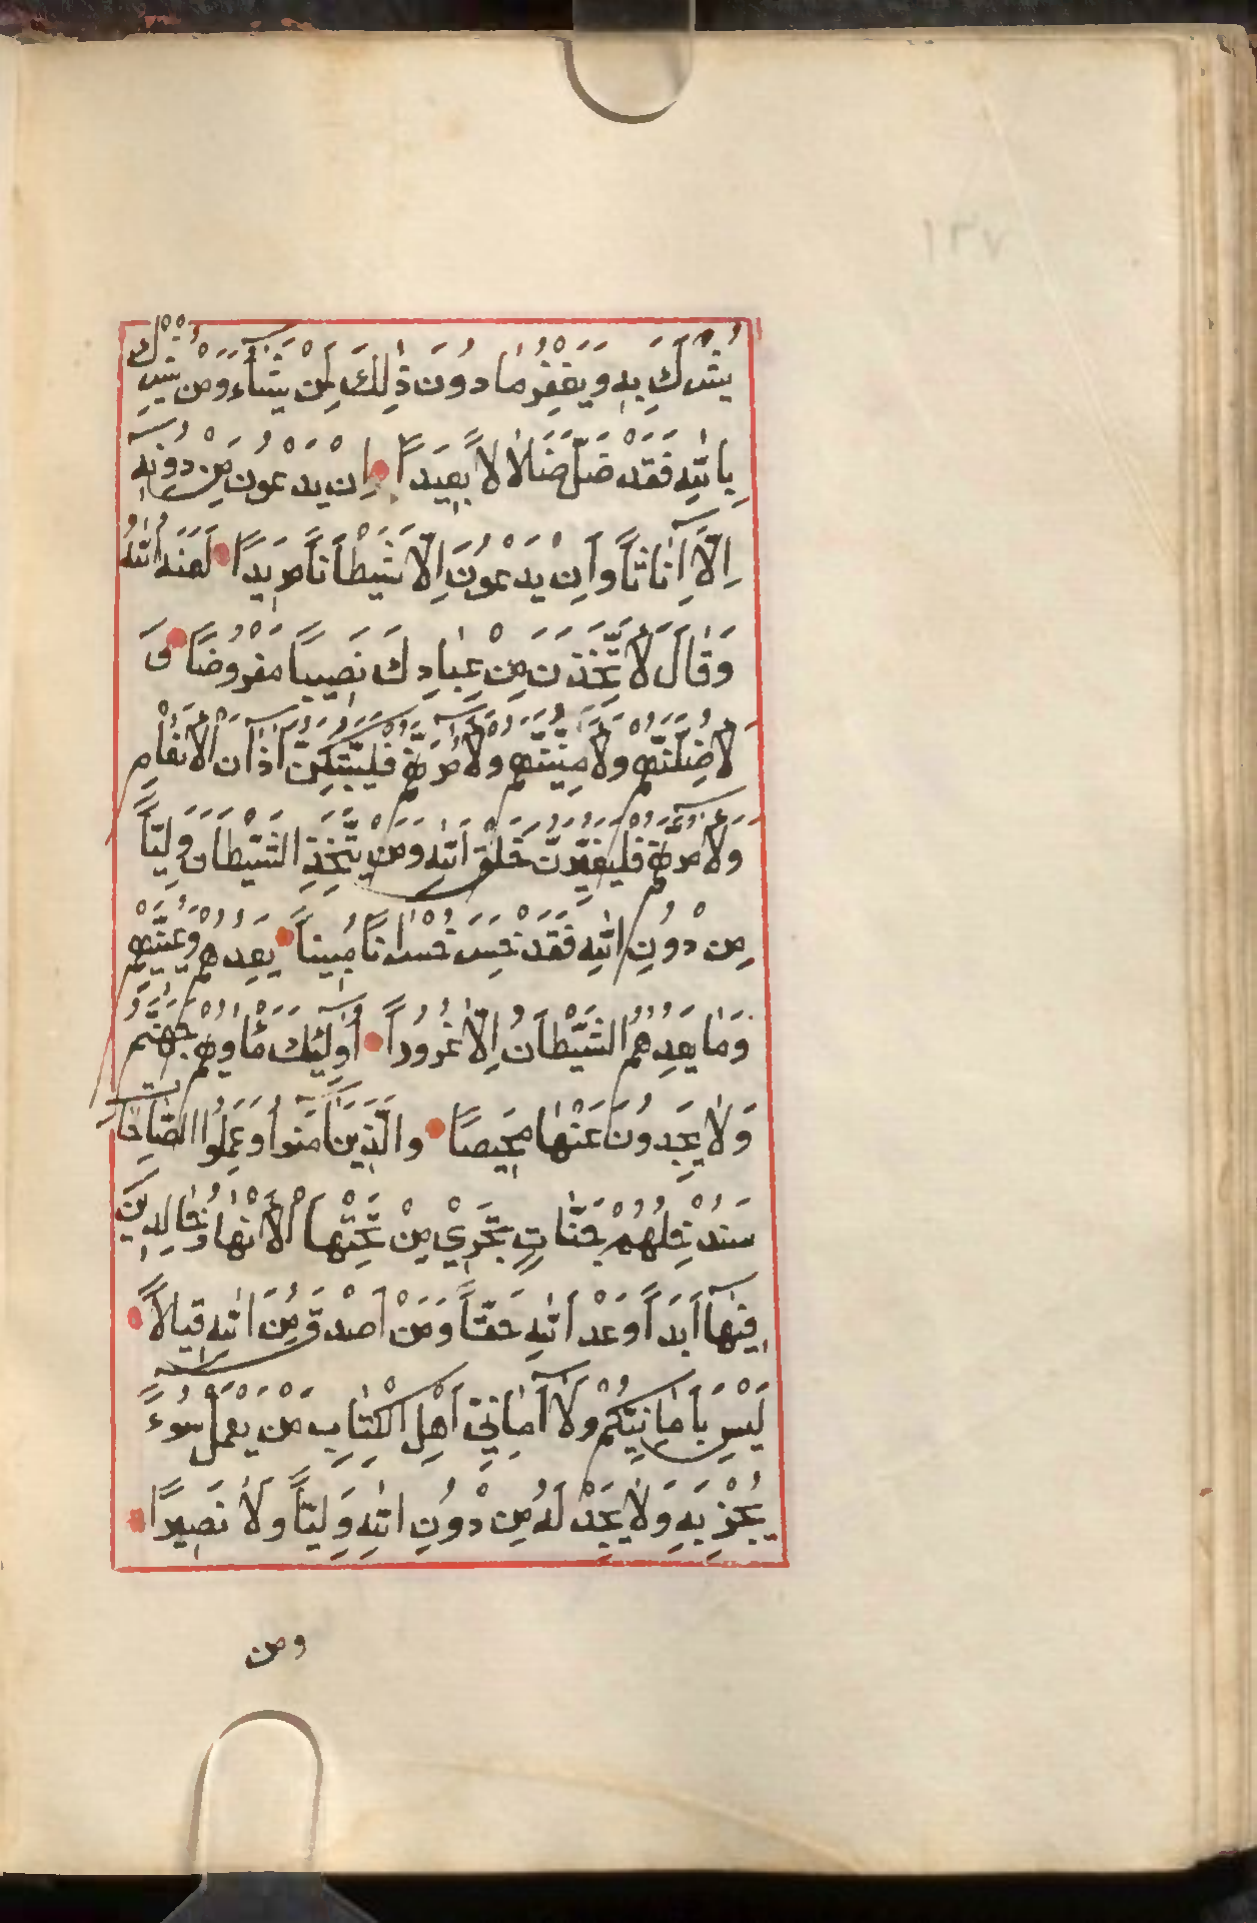 ١٣٧
يُشْرَكَ بِهِ وَيَغْفِرُ مَا دُونَ ذٰلِكَ لِمَنْ يَشَآءُ وَمَنْ يُشْرِكْ
بِاللّٰهِ فَقَدْ ضَلَّ ضَلَالًا بَعِيدًا اِنْ يَدْعُونَ مِنْ دُونِهِ
اِلَّا اِنَاثًا وَاِنْ يَدْعُونَ اِلَّا شَيْطَانًا مَرِيدًا لَعَنَهُ اللّٰهُ
وَقَالَ لَاَتَّخِذَنَّ مِنْ عِبَادِكَ نَصِيبًا مَفْرُوضًا وَ
لَاُضِلَّنَّهُمْ وَلَاُمَنِّيَنَّهُمْ وَلَاٰمُرَنَّهُمْ فَلَيُبَتِّكُنَّ اٰذَانَ الْاَنْعَامِ
وَلَاٰمُرَنَّهُمْ فَلَيُغَيِّرُنَّ خَلْقَ اللّٰهِ وَمَنْ يَتَّخِذِ الشَّيْطَانَ وَلِيًّا
مِنْ دُونِ اللّٰهِ فَقَدْ خَسِرَ خُسْرَانًا مُبِينًا يَعِدُهُمْ وَيُمَنِّيهِمْ
وَمَا يَعِدُهُمُ الشَّيْطَانُ اِلَّا غُرُورًا اُولٰٓئِكَ مَأْوٰيهُمْ جَهَنَّمُ
وَلَا يَجِدُونَ عَنْهَا مَحِيصًا وَالَّذِينَ اٰمَنُوا وَعَمِلُوا الصَّالِحَاتِ
سَنُدْخِلُهُمْ جَنَّاتٍ تَجْرِي مِنْ تَحْتِهَا الْاَنْهَارُ خَالِدِينَ
فِيهَآ اَبَدًا وَعْدَ اللّٰهِ حَقًّا وَمَنْ اَصْدَقُ مِنَ اللّٰهِ قِيلًا
لَيْسَ بِاَمَانِيِّكُمْ وَلَآ اَمَانِيِّ اَهْلِ الْكِتَابِ مَنْ يَعْمَلْ سُوءً
يُجْزَ بِهِ وَلَا يَجِدْ لَهُ مِنْ دُونِ اللّٰهِ وَلِيًّا وَلَا نَصِيرًا
ومن